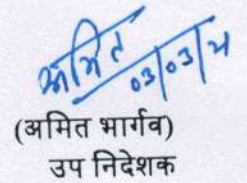 अमित
03/03/21
(अमित भार्गव)
उप निदेशक